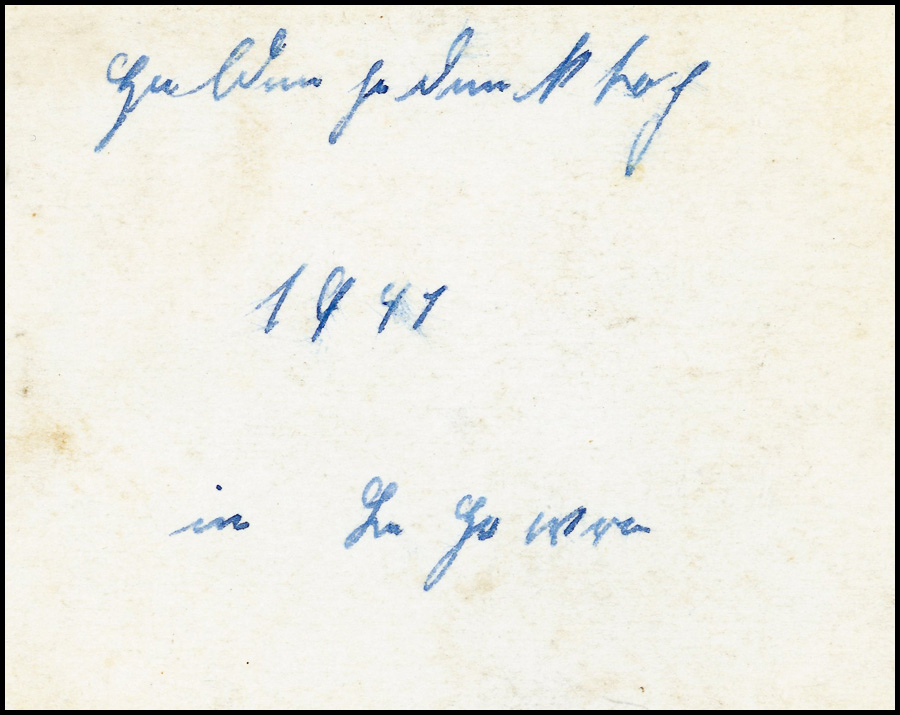 Heldengedenktag
1941
in Le Havre